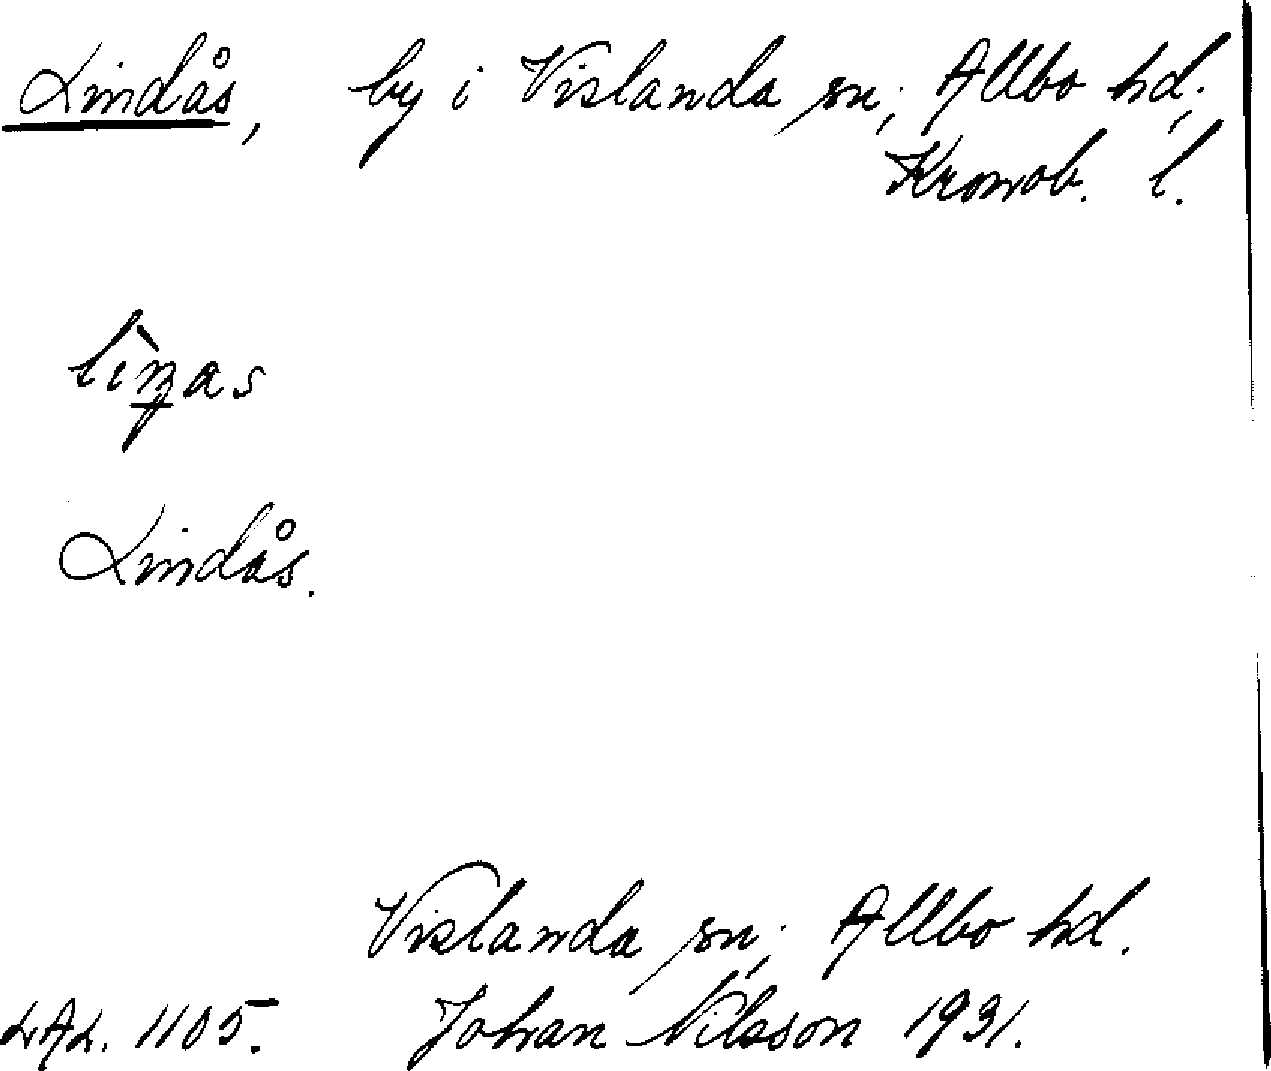 Lindås, by i Vislanda sn, Allbo hd,
Kronob. l.
Lindås.
Vislanda sn, Allbo hd.
LAL. 1105. Johan Nilsson 1931.